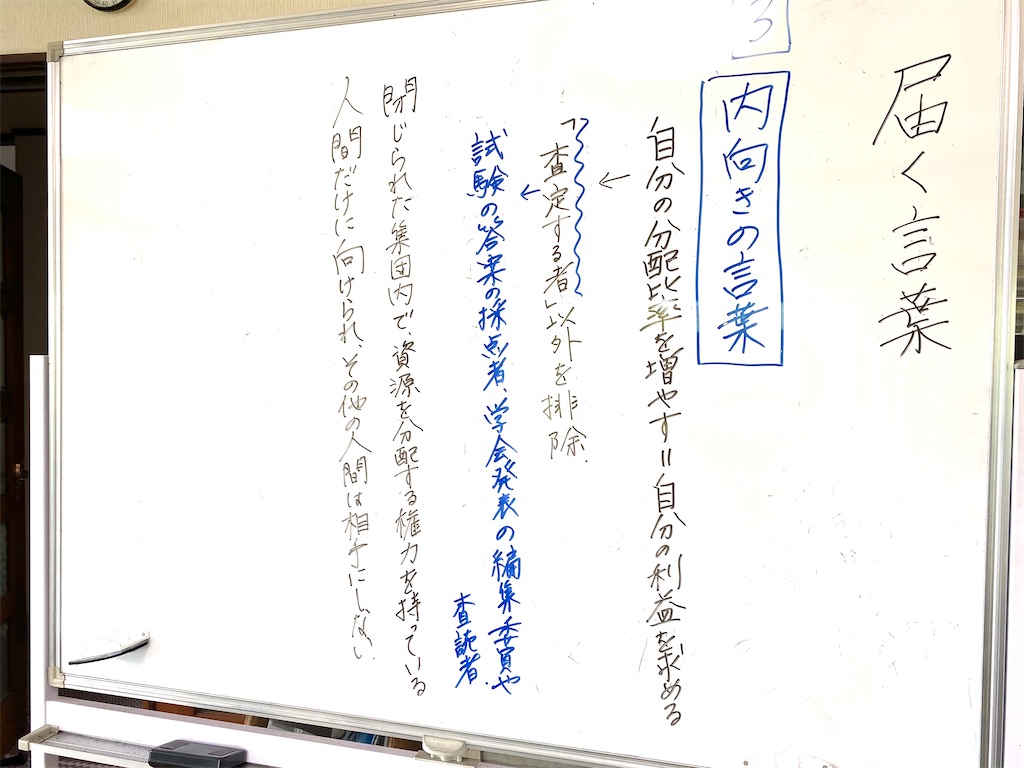 届く言葉
3
内向きの言葉
自分の分配比率を増やす=自分の利益を求める
「査定する者」以外を排除.
試験の答案の採点者、学会発表の編集委員や
査読者.
閉じられた集団内で、資源を分配する権力を持っている
人間だけに向けられ、その他の人間は相手にしない.